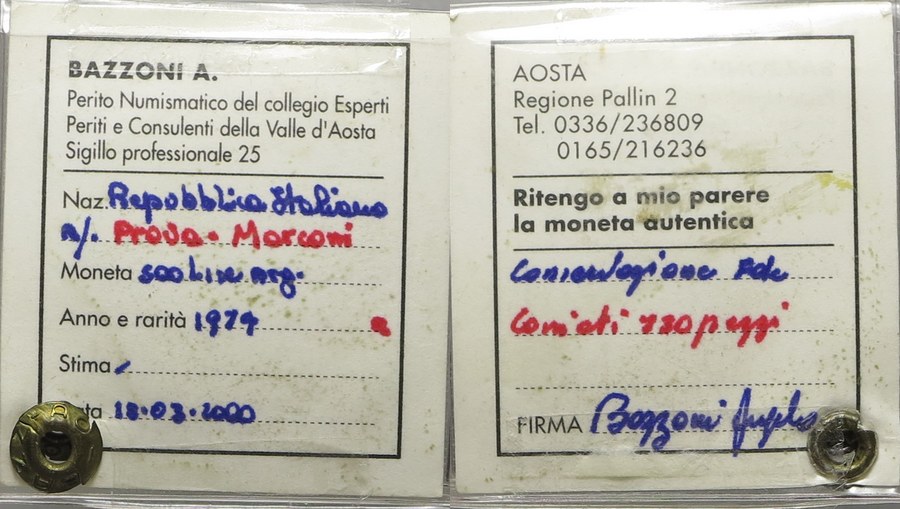 BAZZONI A.
Perito Numismatico del collegio Esperti
Periti e Consulenti della Valle d'Aosta
Sigillo professionale 25
Naz. Repubblica Italiana
n/. Prova - Marconi
Moneta 500 Lire arg.
Anno e rarità 1974 R
Stima /
18.03.2000
AOSTA
Regione Pallin 2
Tel. 0336/236809
0165/216236
Ritengo a mio parere
la moneta autentica
Conservazione Fdc
Coniati pezzi
FIRMA Bazzoni Angelo